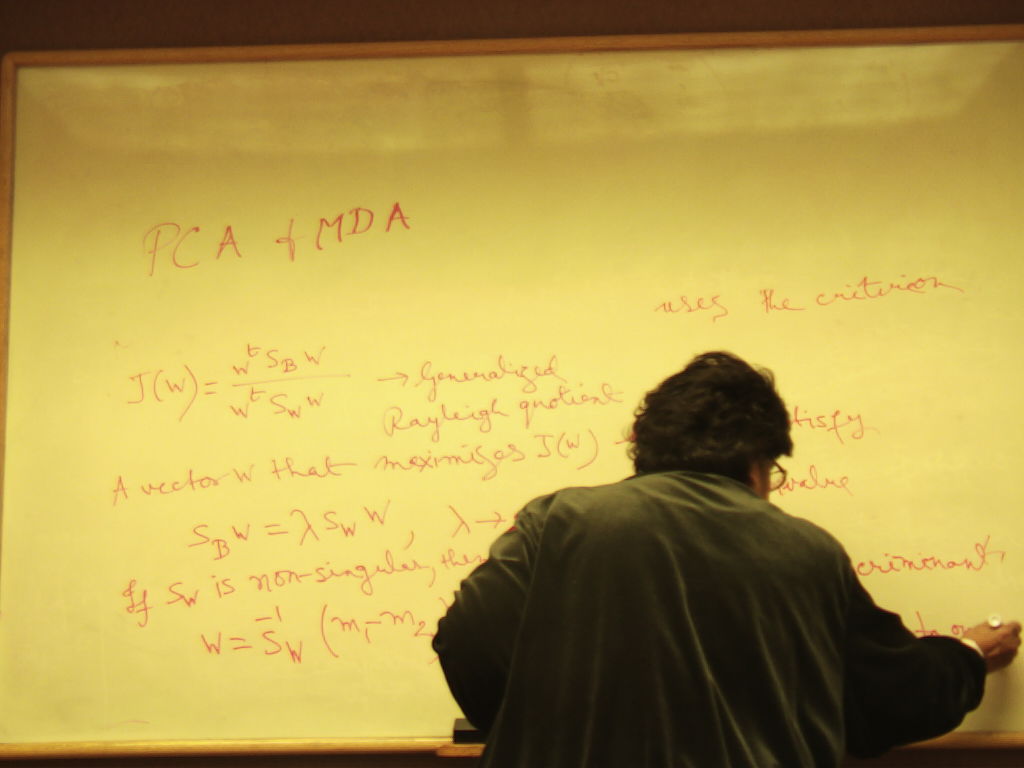 PCA & MDA
uses the criterion
J(w) = w^t S_B w / w^t S_W w → Generalized
Rayleigh quotient
A vector w that maximizes J(w) tisfy
S_B w = λ S_W w, λ → value
If S_W is non-singular, then criminant,
w = S_W^-1 (m_1 - m_2) to